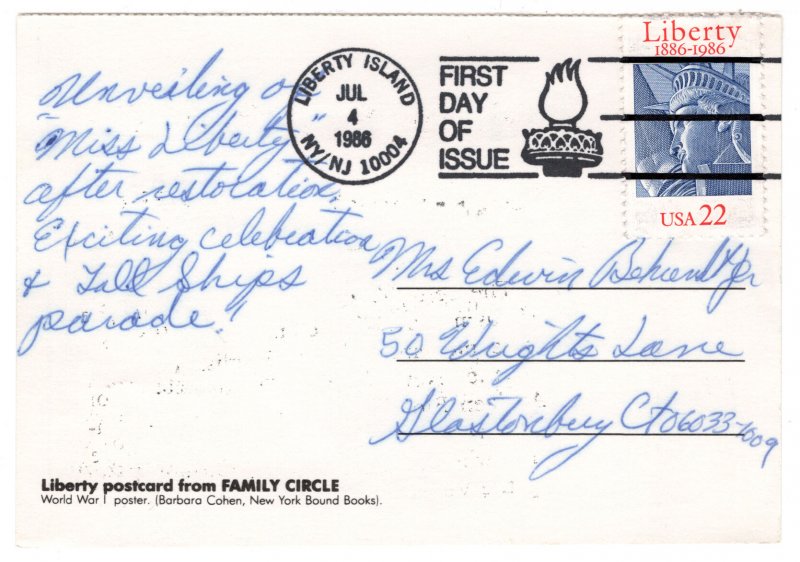 Unveiling of
"Miss Liberty"
after restoration.
Exciting celebration
& Tall Ships
parade!
LIBERTY ISLAND
JUL
4
1986
NY/NJ 10004
FIRST
DAY
OF
ISSUE
Liberty
1886-1986
USA 22
Mrs Edwin Behrendt Jr
50 Wrights Lane
Glastonbury Ct 06033-1009
Liberty postcard from FAMILY CIRCLE
World War I poster. (Barbara Cohen, New York Bound Books).